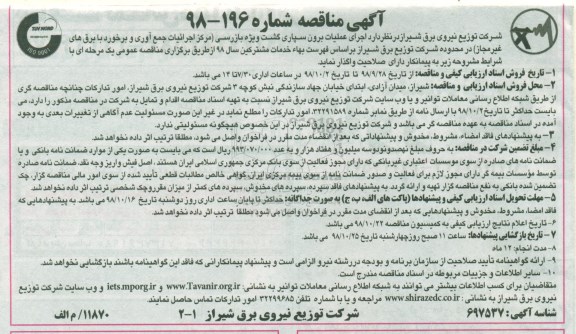 آگهی مناقصه شماره ۱۹۶-۹۸
شرکت توزیع نیروی برق شیراز در نظر دارد اجرای عملیات برون سپاری گشت ویژه بازرسی (مرکز اجرائیات جمع آوری و برخورد با برق های
غیر مجاز) در محدوده شرکت توزیع برق شیراز براساس فهرست بهاء خدمات مشترکین سال ۹۸ از طریق برگزاری مناقصه عمومی یک مرحله ای با
شرایط مشروحه زیر به پیمانکار دارای صلاحیت واگذار نماید.
۱- تاریخ فروش اسناد ارزیابی کیفی و مناقصه: از تاریخ ۹۸/۹/۲۸ تا تاریخ ۹۸/۱۰/۲ در ساعات اداری ۷/۳۰ تا ۱۴ می باشد.
۲- محل فروش اسناد ارزیابی و مناقصه: شیراز، میدان آزادی، ابتدای خیابان جهاد سازندگی نبش کوچه ۳ شرکت توزیع نیروی برق شیراز، امور تدارکات چنانچه مناقصه گری
از طریق شبکه اطلاع رسانی معاملات توانیر و یا وب سایت شرکت توزیع نیروی برق شیراز نسبت به تهیه اسناد مناقصه اقدام و تمایل به شرکت در مناقصه مذکور را دارد، می
بایست حداکثر تا تاریخ ۹۸/۱۰/۲ با ارسال نامه از طریق نمابر ۳۲۲۹۱۵۸۹ امور تدارکات را مطلع نماید در غیر این صورت مسئولیت عدم آگاهی از تغییرات بعدی به وجود
آمده در اسناد مناقصه به عهده مناقصه گر می باشد و شرکت توزیع نیروی برق شیراز در این خصوص هیچگونه مسئولیتی ندارد.
۳- به پیشنهادهای فاقد امضاء، مشروط، مخدوش و پیشنهاداتی که بعد از انقضاء مدت مقرر در فراخوان واصل می شود، مطلقا ترتیب اثر داده نخواهد شد.
۴- مبلغ تضمین شرکت در مناقصه: به حروف مبلغ نهصد و نود و سه میلیون و هفتاد هزار و به عدد ۹۹۳/۰۷۰/۰۰۰ ریال است که می بایست به صورت یکی از موارد ضمانت نامه بانکی و یا
ضمانت نامه های صادره از سوی موسسات اعتباری غیربانکی که دارای مجوز فعالیت از سوی بانک مرکزی جمهوری اسلامی ایران هستند، اصل فیش واریز وجه نقد، ضمانت نامه صادره
توسط مؤسسات بیمه گر دارای مجوز لازم برای فعالیت و صدور ضمانت نامه از سوی بیمه مرکزی ایران، گواهی خالص مطالبات قطعی تأیید شده از سوی امور مالی مناقصه گزار، چک
تضمین شده بانکی به نفع مناقصه گزار تهیه و ارائه گردد. به پیشنهادهای فاقد سپرده، سپرده های مخدوش، سپرده های کمتر از میزان مقرر و چک شخصی ترتیب اثر داده نخواهد شد.
۵- مهلت تحویل اسناد ارزیابی کیفی و پیشنهادها (پاکت های الف، ب، ج) به صورت جداگانه: حداکثر تا پایان ساعت اداری روز دوشنبه تاریخ ۹۸/۱۰/۱۶ می باشد. به پیشنهادهایی که
فاقد امضا، مشروط، مخدوش و پیشنهادهایی که بعد از انقضای مدت مقرر در فراخوان واصل می شود مطلقا ترتیب اثر داده نخواهد شد.
۶- تاریخ اعلام نتایج ارزیابی کیفی به کمیسیون مناقصه ۹۸/۱۰/۲۲ می باشد.
۷- تاریخ بازگشایی پیشنهادها: ساعت ۱۱ صبح روز چهارشنبه تاریخ ۹۸/۱۰/۲۵ می باشد.
۸- مدت انجام: ۱۲ ماه
۹- ارائه گواهینامه تأیید صلاحیت از سازمان برنامه و بودجه در رشته نیرو الزامی است و پیشنهاد پیمانکارانی که فاقد این گواهینامه باشند بازگشایی نخواهد شد.
۱۰- سایر اطلاعات و جزییات مربوطه در اسناد مناقصه مندرج است.
متقاضیان برای کسب اطلاعات بیشتر می توانند به شبکه اطلاع رسانی معاملات توانیر به نشانی: www.Tavanir.org.ir و iets.mporg.ir و وب سایت شرکت توزیع
نیروی برق شیراز به نشانی: www.shirazedc.co.ir مراجعه و یا با شماره تلفن ۳۲۲۹۹۶۸۵ امور تدارکات تماس حاصل نمایند.
شناسه آگهی: ۶۹۷۵۳۷
شرکت توزیع نیروی برق شیراز
۲-۱
۱۱۸۷۰/م الف